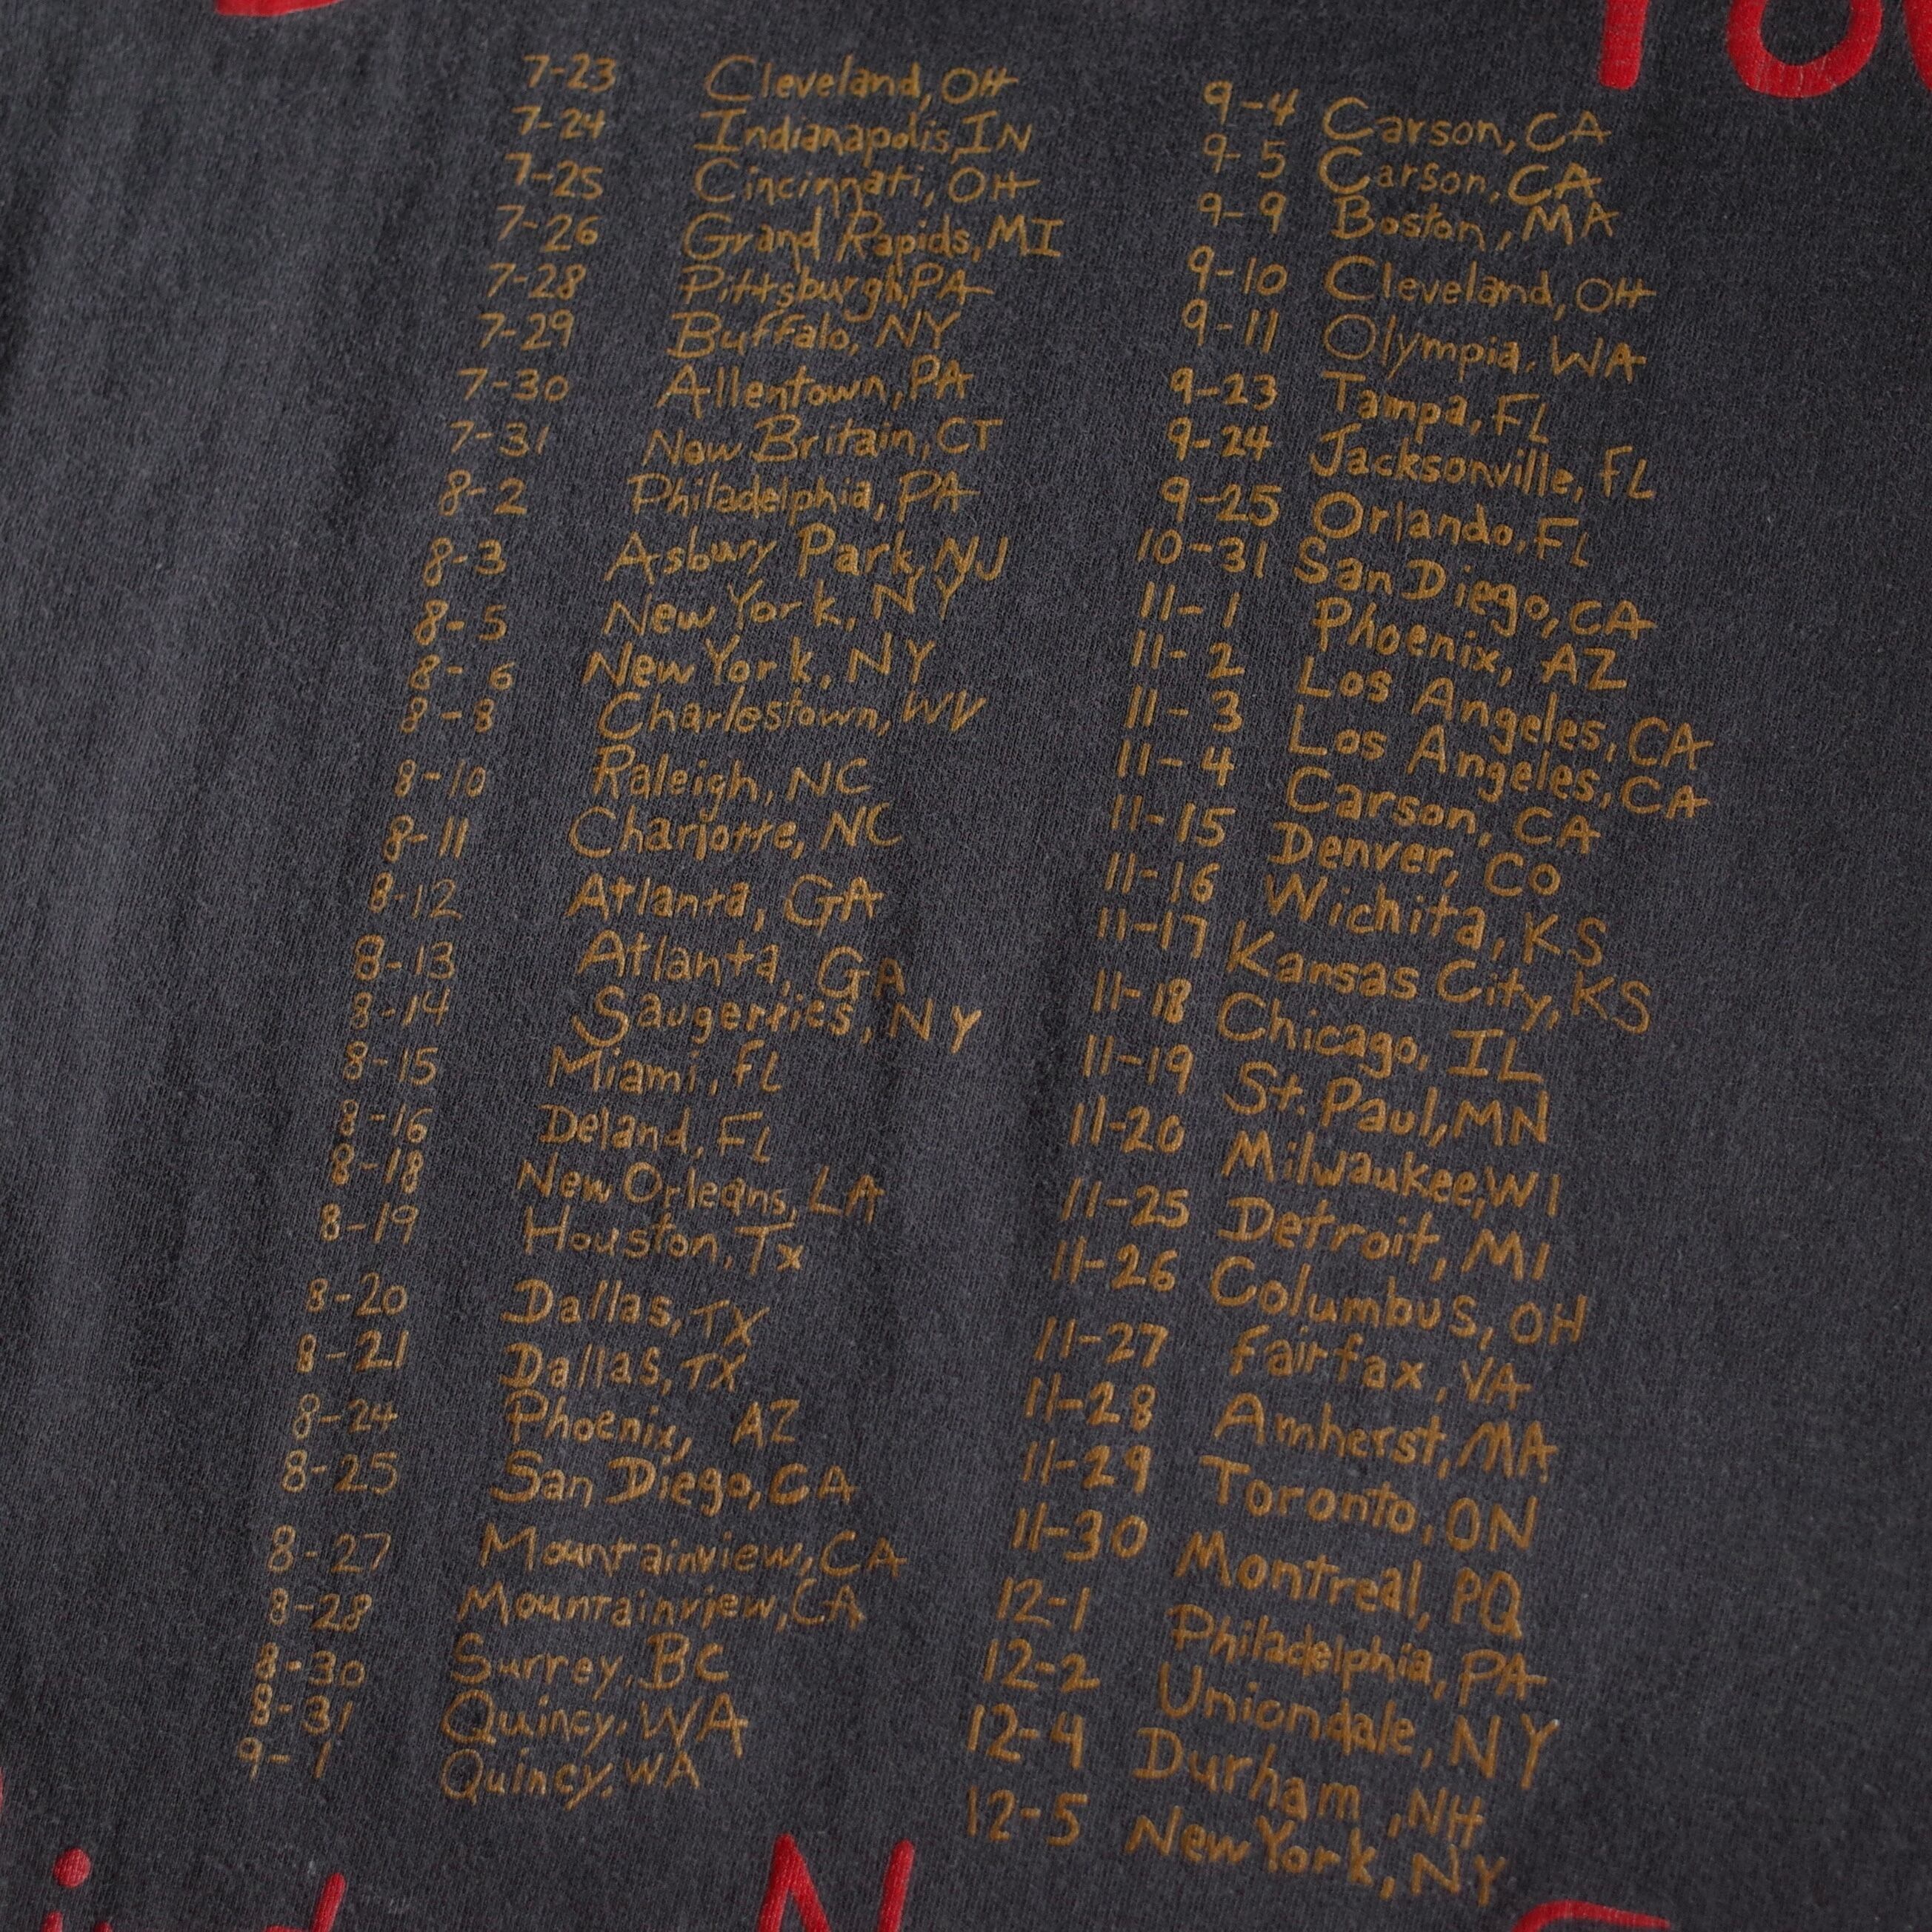 7-23 Cleveland, OH
7-24 Indianapolis, IN
7-25 Cincinnati, OH
7-26 Grand Rapids, MI
7-28 Pittsburgh, PA
7-29 Buffalo, NY
7-30 Allentown, PA
7-31 New Britain, CT
8-2 Philadelphia, PA
8-3 Asbury Park, NJ
8-5 New York, NY
8-6 New York, NY
8-8 Charlestown, WV
8-10 Raleigh, NC
8-11 Charlotte, NC
8-12 Atlanta, GA
8-13 Atlanta, GA
8-14 Saugerties, NY
8-15 Miami, FL
8-16 Deland, FL
8-18 New Orleans, LA
8-19 Houston, Tx
8-20 Dallas, TX
8-21 Dallas, TX
8-24 Phoenix, AZ
8-25 San Diego, CA
8-27 Mountainview, CA
8-28 Mountainview, CA
8-30 Surrey, BC
8-31 Quincy, WA
9-1 Quincy, WA
9-4 Carson, CA
9-5 Carson, CA
9-9 Boston, MA
9-10 Cleveland, OH
9-11 Olympia, WA
9-23 Tampa, FL
9-24 Jacksonville, FL
9-25 Orlando, FL
10-31 San Diego, CA
11-1 Phoenix, AZ
11-2 Los Angeles, CA
11-3 Los Angeles, CA
11-4 Carson, CA
11-15 Denver, CO
11-16 Wichita, KS
11-17 Kansas City, KS
11-18 Chicago, IL
11-19 St. Paul, MN
11-20 Milwaukee, WI
11-25 Detroit, MI
11-26 Columbus, OH
11-27 Fairfax, VA
11-28 Amherst, MA
11-29 Toronto, ON
11-30 Montreal, PQ
12-1 Philadelphia, PA
12-2 Uniondale, NY
12-4 Durham, NH
12-5 New York, NY